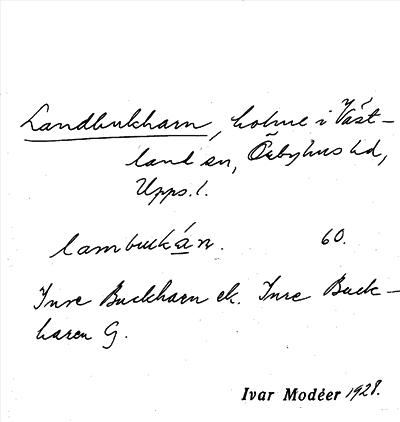 Landbukharn, holme i Väst-
land sn, Örbyhus hd,
Upps. l.
lambuckán. 60.
Inre Buckharn ek. Inre Buck-
haren G.
Ivar Modéer 1928.